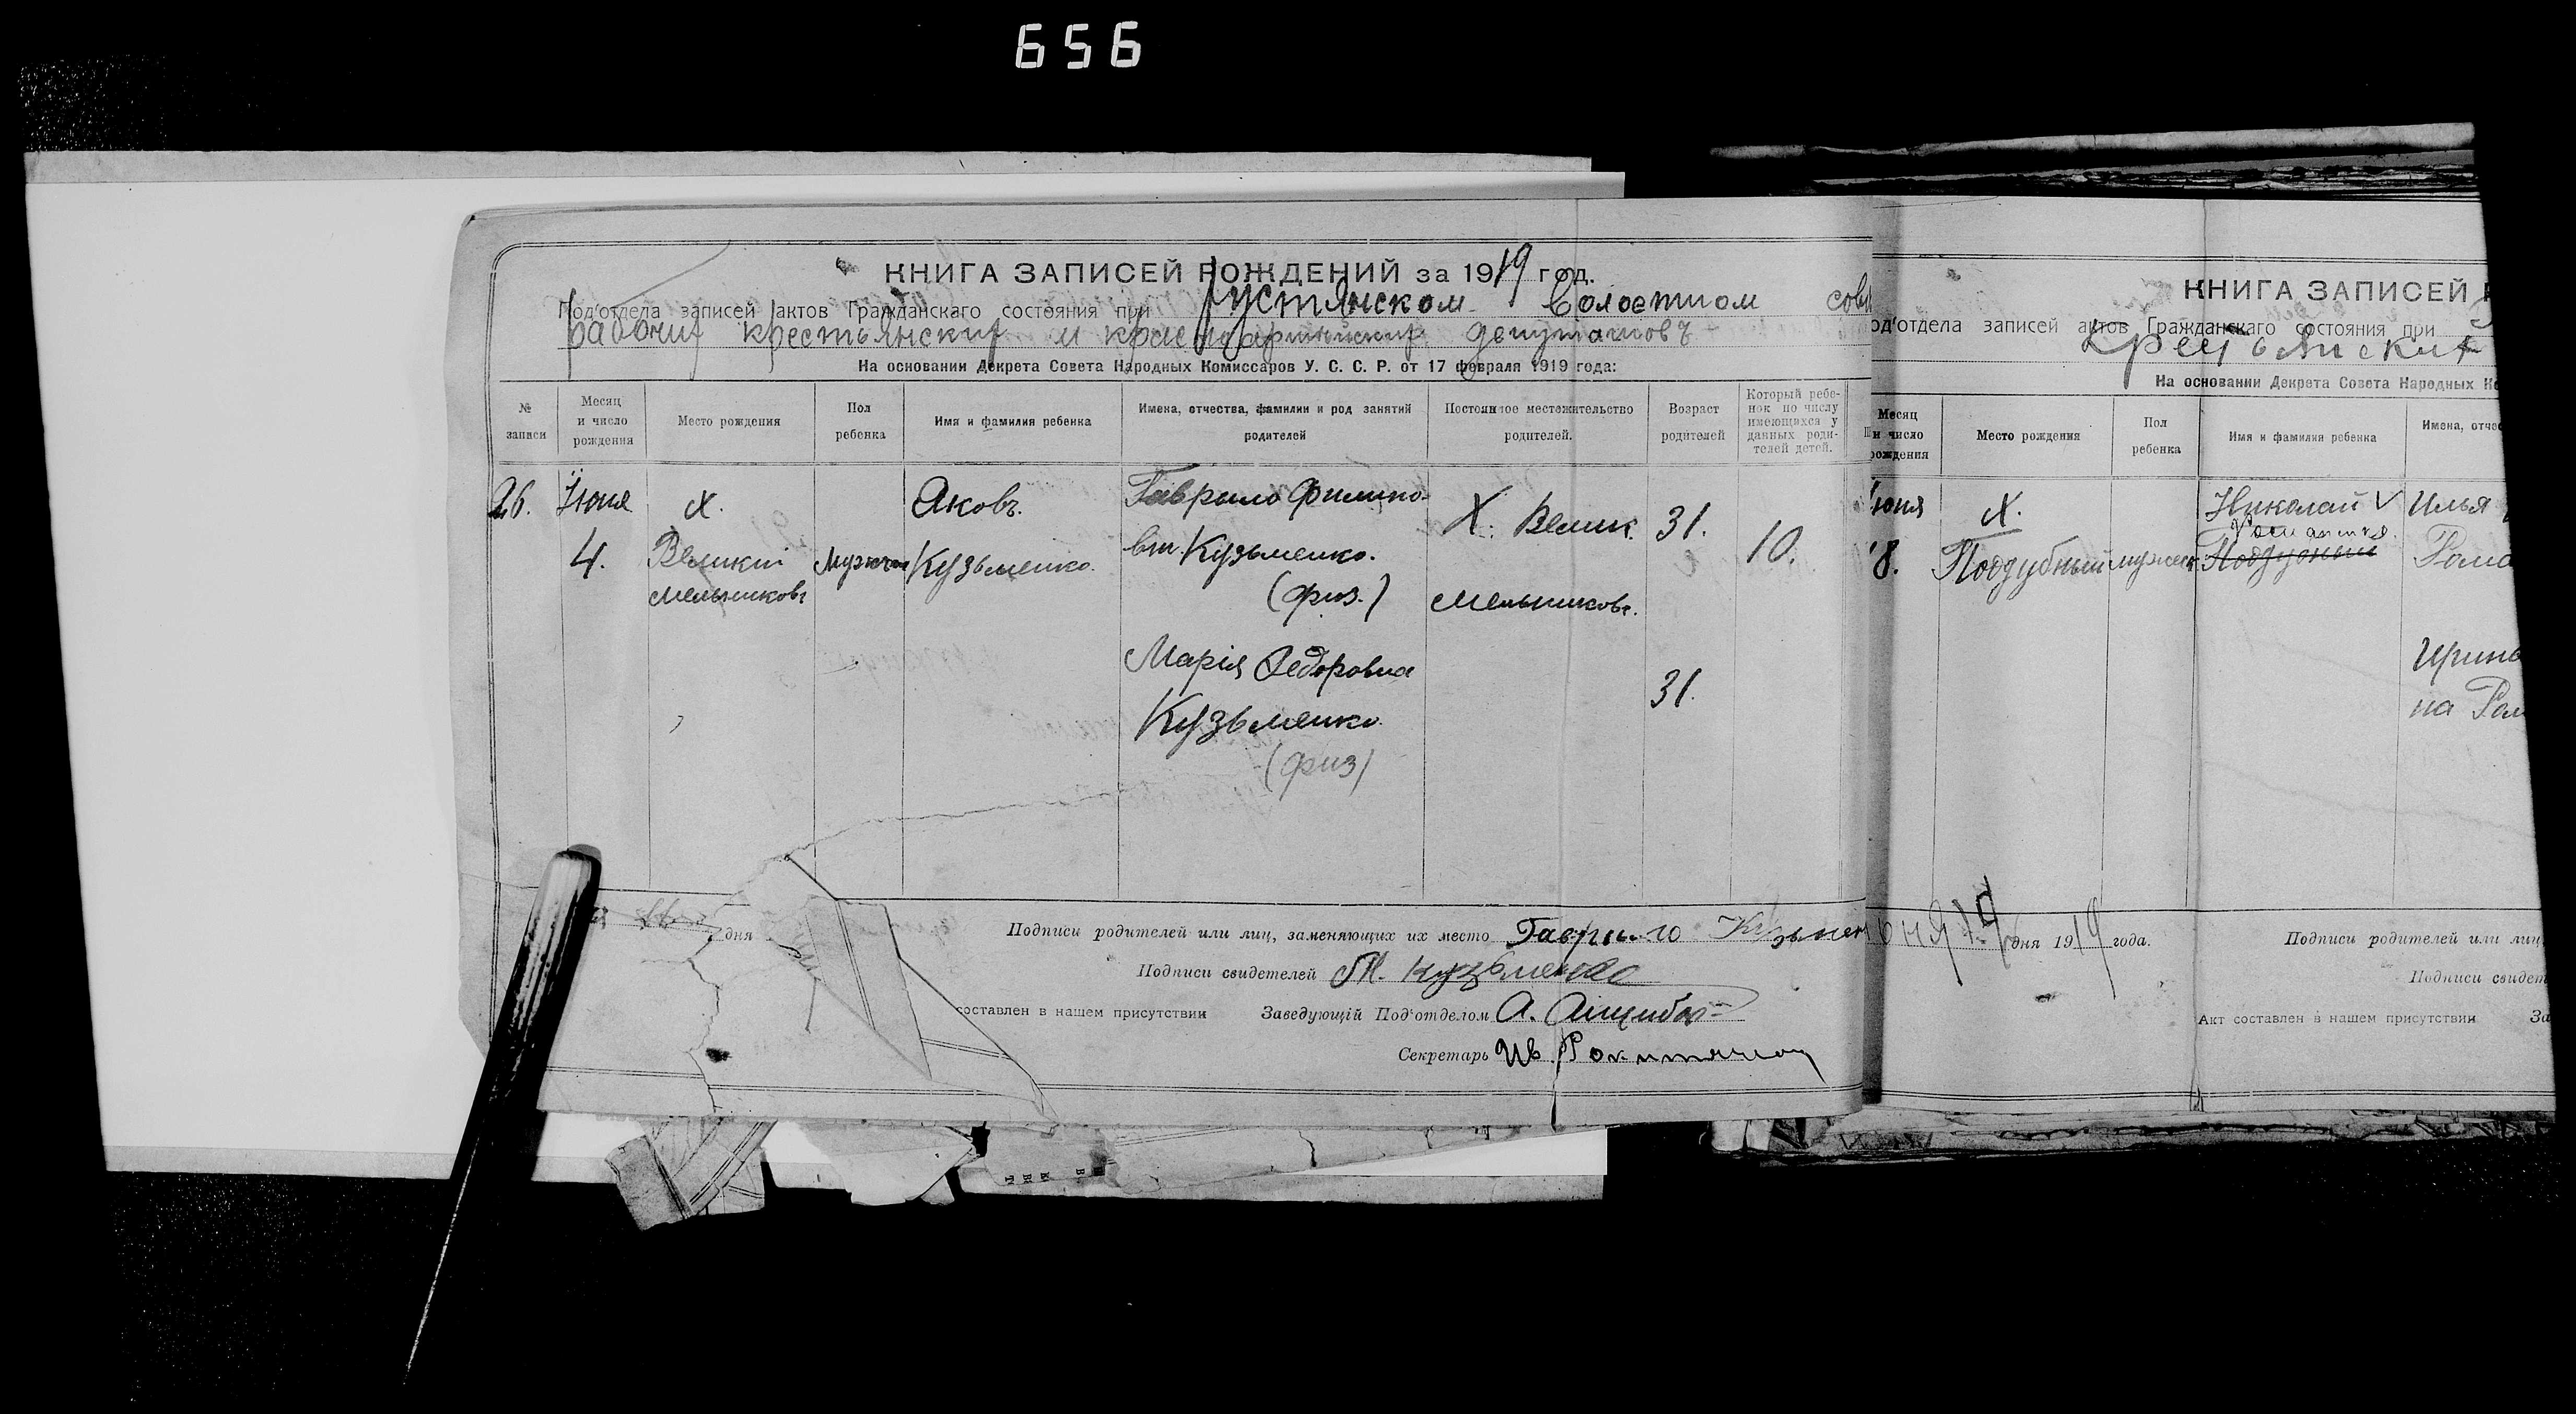 656
КНИГА ЗАПИСЕЙ РОЖДЕНИЙ за 1919 год.
Под'отдела записей актов Гражданскаго состояния при Устянском Волостном сов
рабочих крестьянских и красноармейских депутатовъ
На основании Декрета Совета Народных Комиссаров У. С. С. Р. от 17 февраля 1919 года:
№ записи
Месяц и число рождения
Место рождения
Пол ребенка
Имя и фамилия ребенка
Имена, отчества, фамилии и род занятий родителей
Постоянное местожительство родителей.
Возраст родителей
Который ребенок по числу имеющихся у данных родителей детей.
26.
Июня
4.
х.
Великий
Мельниковъ
Мужчин
Яковъ.
Кузьменко.
Гаврило Филипо-
вич Кузьменко.
(физ.)
Марія Федоровна
Кузьменко.
(физ)
Х. Велик.
Мельниковъ.
31.
31.
10.
дня
Подписи родителей или лиц, заменяющих их место Гаврило Кузьмен
Подписи свидетелей М. Кузьменко
составлен в нашем присутствии Заведующій Под'отделом А.
Секретарь Ив.
КНИГА ЗАПИСЕЙ
од'отдела записей актов Гражданскаго состояния при
Крестьянских
На основании Декрета Совета Народных Ко
Месяц и число рождения
Место рождения
Пол ребенка
Имя и фамилия ребенка
Имена, отчес
Июня
8.
х.
Поддубный
мужск
Николай V
Романенко.
Поддубный
Илья
Рома
Ирина
на Ром
дня 1919 года.
Подписи родителей или лиц
Подписи свидет
Акт составлен в нашем присутствии За